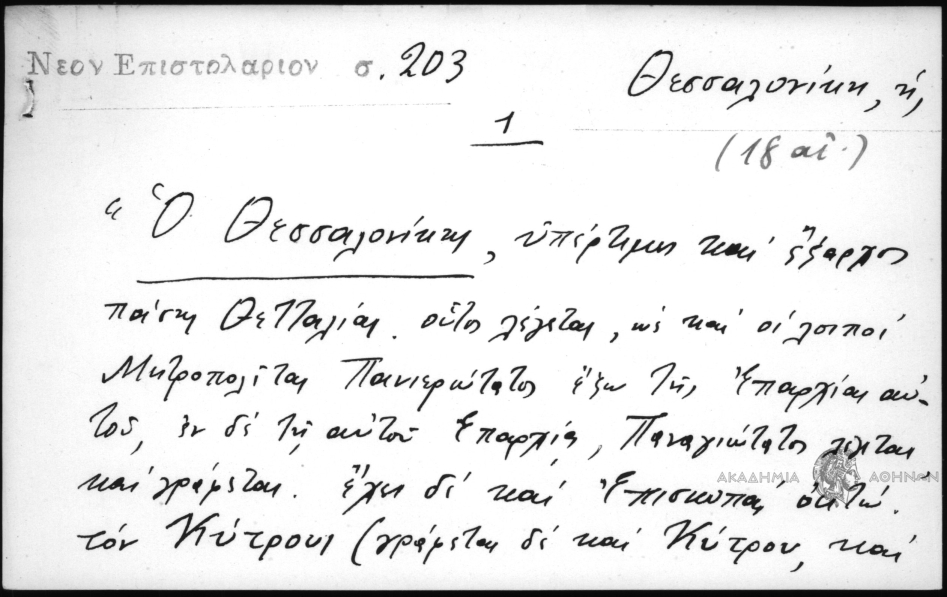 Νεον Επιστολαριον σ. 203
Θεσσαλονίκη, ἡ,
1
(18 αἰ.)
"Ὁ Θεσσαλονίκης, ὑπέρτιμος καί ἔξαρχος
πάσης Θετταλίας. οὗτος λέγεται, ὡς καί οἱ λοιποί
Μητροπολῖται Πανιερώτατος ἔξω τῆς Ἐπαρχίας αὐ-
τοῦ, ἐν δέ τῇ αὐτοῦ Ἐπαρχίᾳ, Παναγιώτατος λέγεται
καί γράφεται. ἔχει δέ καί Ἐπισκοπάς ὀκτώ.
τόν Κύτρους (γράφεται δέ καί Κύτρου, καί
ΑΚΑΔΗΜΙΑ ΑΘΗΝΩΝ